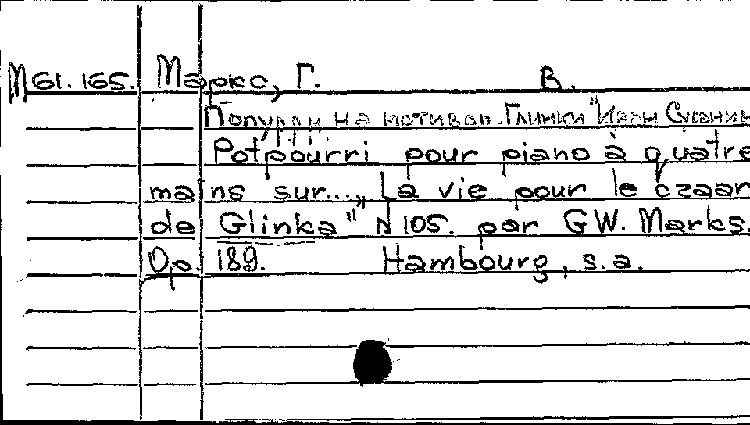 М61.165. Маркс, Г. В.
Попурри на мотивов Глинки "Иван Сусанин
Potpourri pour piano à quatre
mains sur... „La vie pour le czaar
de Glinka" N 105. par G W. Marks.
Op 189. Hambourg, s.a.